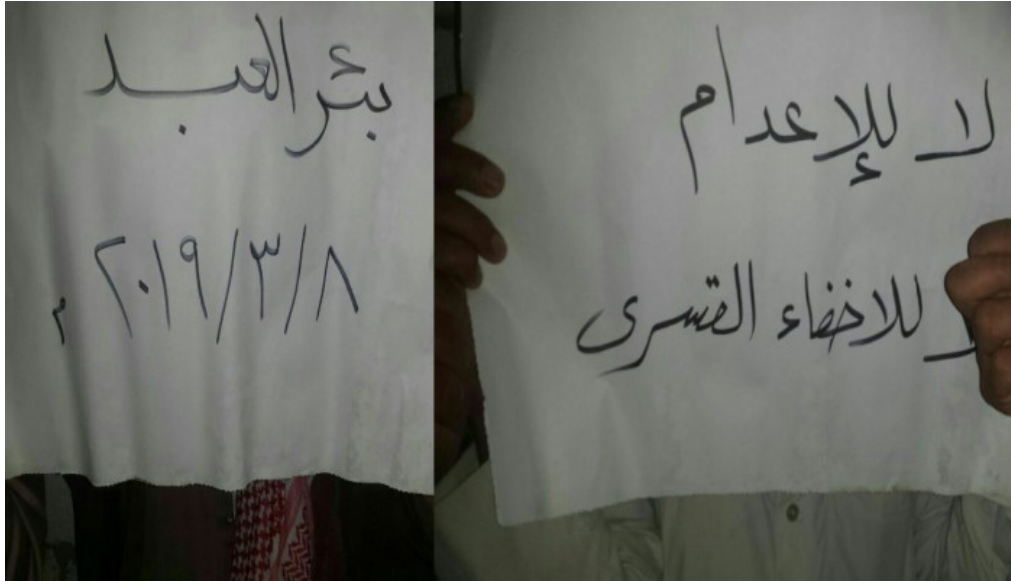 لا للإعدام
لا للاخفاء القسرى
بئر العبد
٨/٣/٢٠١٩ م